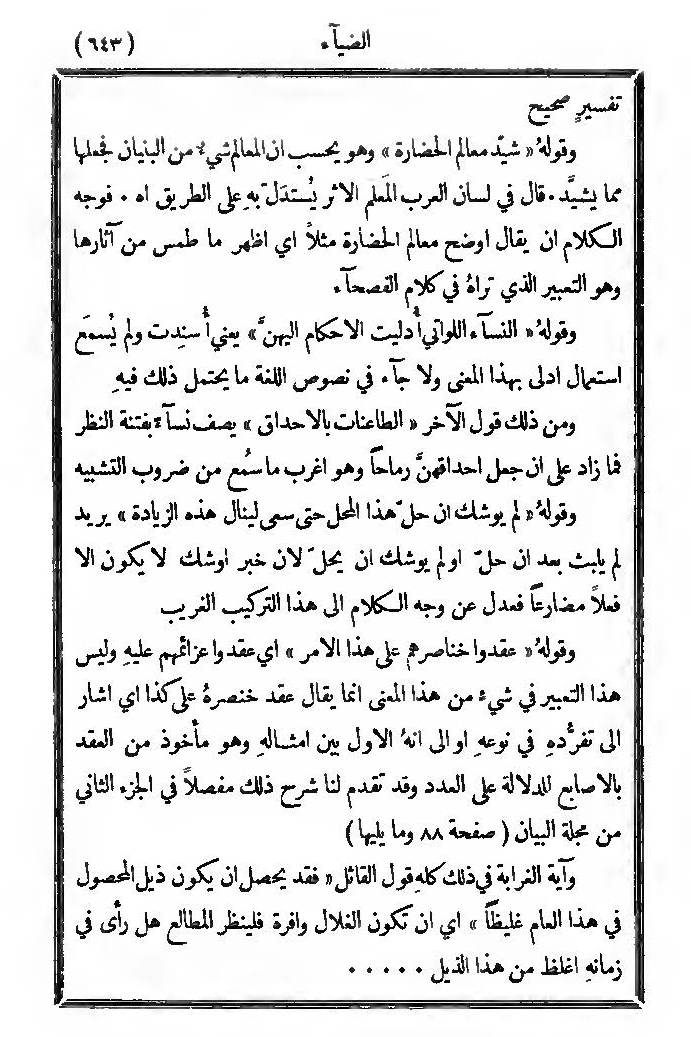 الضيآء (٦٤٣)
تفسيرٍ صحيح
وقولهُ « شيّد معالم الحضارة » وهو يحسب ان المعالم شيءٌ من البنيان فجعلها
مما يشيَّد ٠ قال في لسان العرب المَعلَم الاثر يُستدَلّ بهِ على الطريق اه ٠ فوجه
الكلام ان يقال اوضح معالم الحضارة مثلاً اي اظهر ما طمس من آثارها
وهو التعبير الذي تراهُ في كلام الفصحآء
وقولهُ « النسآء اللواتي أُدليت الاحكام اليهنَّ » يعني أُسندت ولم يُسمَع
استعمال ادلى بهذا المعنى ولا جآء في نصوص اللغة ما يحتمل ذلك فيهِ
ومن ذلك قول الآخر « الطاعنات بالاحداق » يصف نسآءً بفتنة النظر
فما زاد على ان جعل احداقهنَّ رماحاً وهو اغرب ما سُمع من ضروب التشبيه
وقولهُ « لم يوشك ان حلّ هذا المحل حتى سعى لينال هذه الزيادة » يريد
لم يلبث بعد ان حلّ او لم يوشك ان يحلّ لان خبر اوشك لا يكون الا
فعلاً مضارعاً فعدل عن وجه الكلام الى هذا التركيب الغريب
وقولهُ « عقدوا خناصرهم على هذا الامر » اي عقدوا عزائمهم عليهِ وليس
هذا التعبير في شيء من هذا المعنى انما يقال عقد خنصرهُ على كذا اي اشار
الى تفرُّدهِ في نوعهِ او الى انهُ الاول بين امثالهِ وهو مأخوذ من العقد
بالاصابع للدلالة على العدد وقد تقدم لنا شرح ذلك مفصلاً في الجزء الثاني
من مجلة البيان ( صفحة ٨٨ وما يليها )
وآية الغرابة في ذلك كلهِ قول القائل « فقد يحصل ان يكون ذيل المحصول
في هذا العام غليظاً » اي ان تكون الغلال وافرة فلينظر المطالع هل رأى في
زمانهِ اغلظ من هذا الذيل ٠ ٠ ٠ ٠ ٠